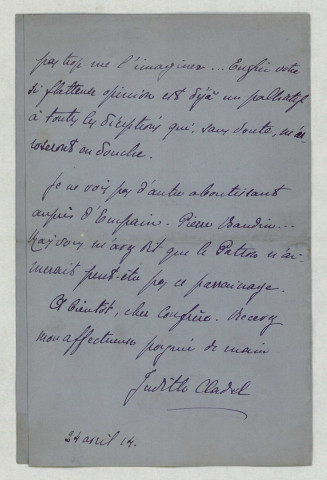 pas trop me l'imaginer... Enfin votre
si flatteuse opinion est déjà un palliatif
à toutes les déceptions qui, sans doute, m'ar-
roseront en douche.
Je ne vois pas d'autre aboutissant
auprès d'Empain. Pierre Baudin...
Mais vous m'avez dit que le Patron n'ai-
merait peut-être pas ce parrainage.
A bientôt, cher Confrère. Recevez
mon affectueuse poignée de main
Judith Cladel
24 avril 14.